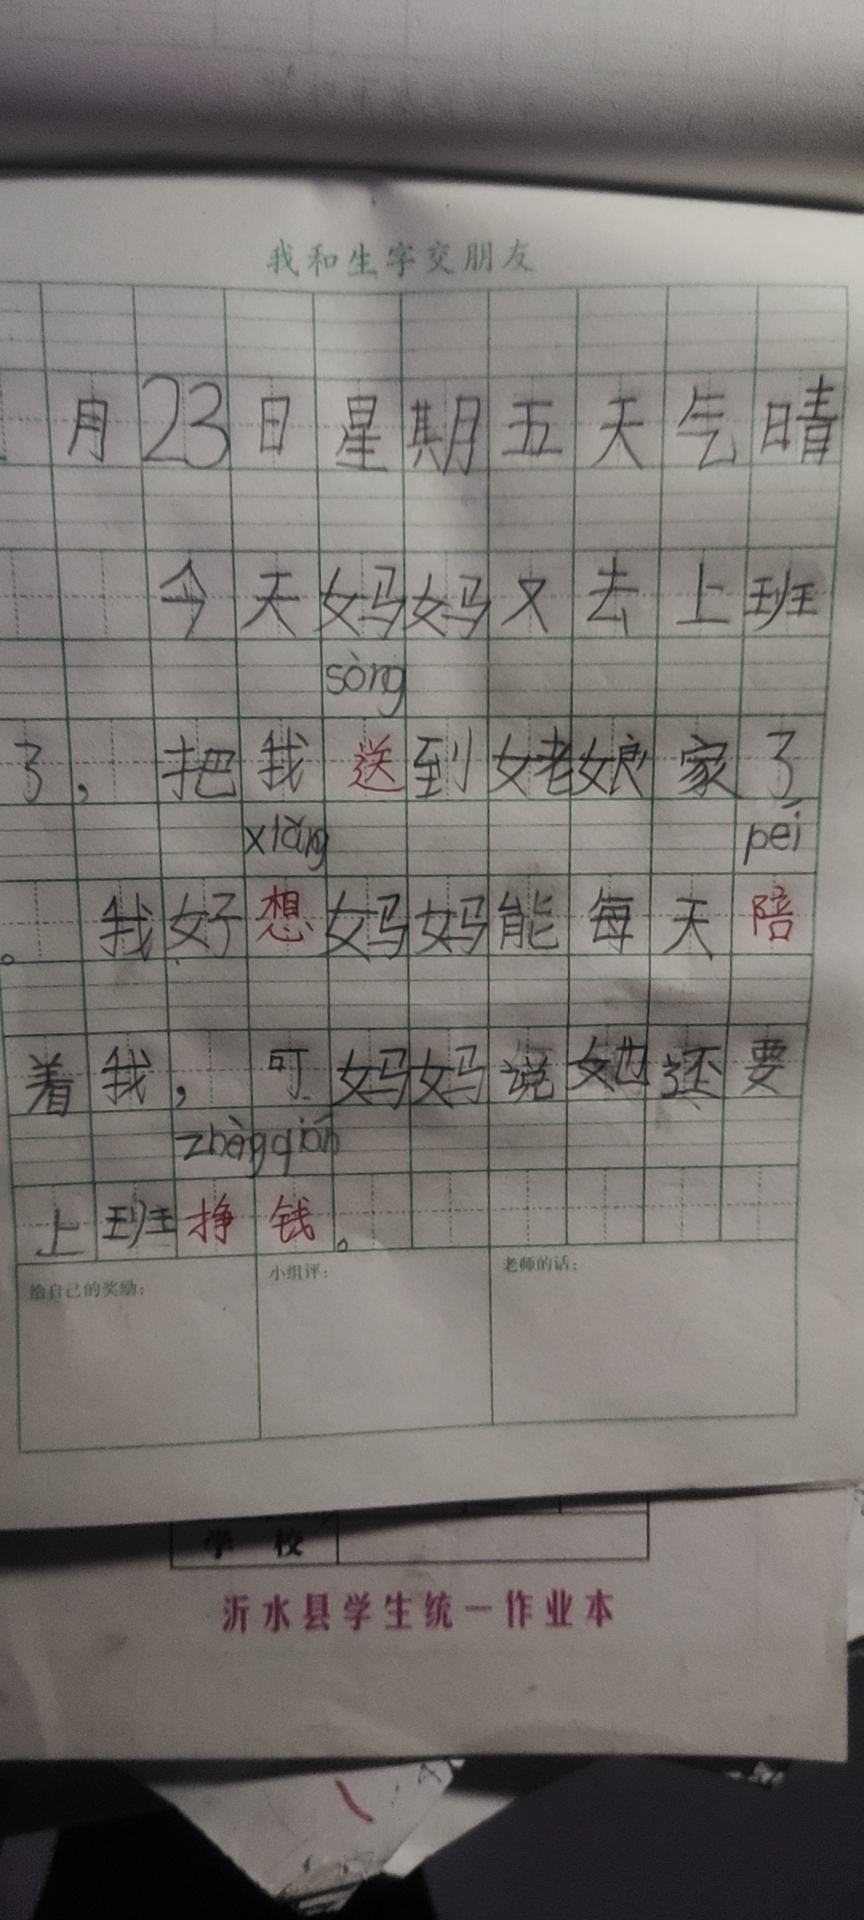 我和生字交朋友
月23日星期五天气晴
今天妈妈又去上班
sòng
了，把我送到姥娘家了
xiǎng péi
。我好想妈妈能每天陪
着我，可妈妈说她还要
zhèng qián
上班挣钱。
给自己的奖励：
小组评：
老师的话：
学校
沂水县学生统一作业本